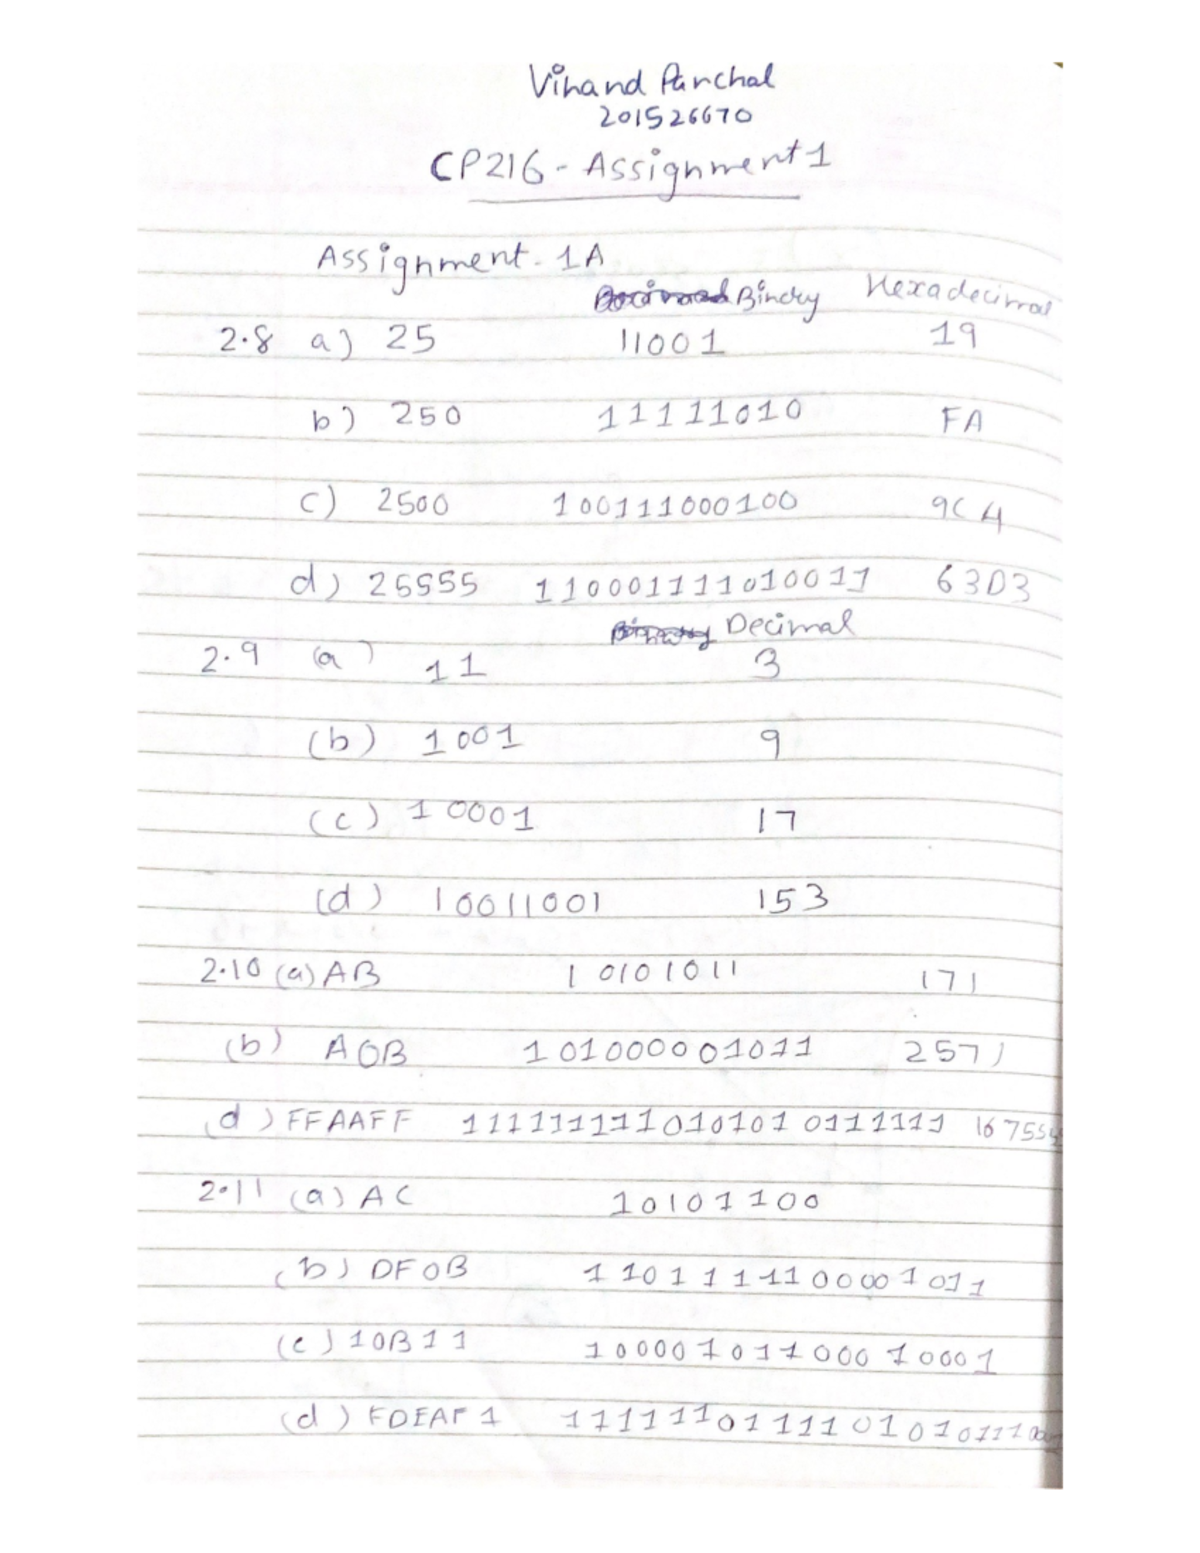 Vihand Panchal
201526670
CP216 - Assignment 1
Assignment. 1A
Binary Hexadecimal
2.8 a) 25 11001 19
b) 250 11111010 FA
c) 2500 100111000100 9C4
d) 25555 110001111010011 63D3
Decimal
2.9 (a) 11 3
(b) 1001 9
(c) 10001 17
(d) 10011001 153
2.10 (a) AB 10101011 171
(b) A0B 101000001011 2571
(d) FFAAFF 111111111010101 0111111
2.11 (a) AC 10101100
(b) DF0B 1101111100001011
(c) 10B11 10000101100010001
(d) FDEAF1